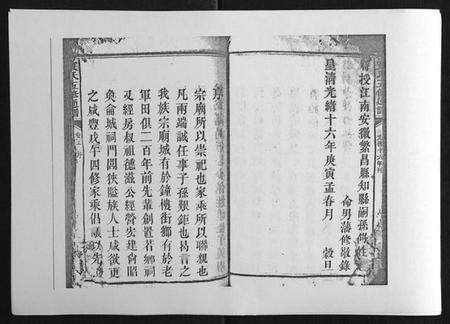 授江南安徽繁昌縣知縣嗣孫
侖男藩修敬錄
皇清光緒十六年庚寅孟春月 穀旦
宗廟所以崇祀也家乘所以聯親也
凡兩端誠任事子孫艱鉅也揭言之
我族宗廟城有於鐘機街鄉有於老
軍田俱二百年前先輩創置若鄉祠
及經房叔祖德滋公經營宏建
奐侖城祠門閭狹隘族人士咸欲更
之咸豐戊午四修家乘倡議